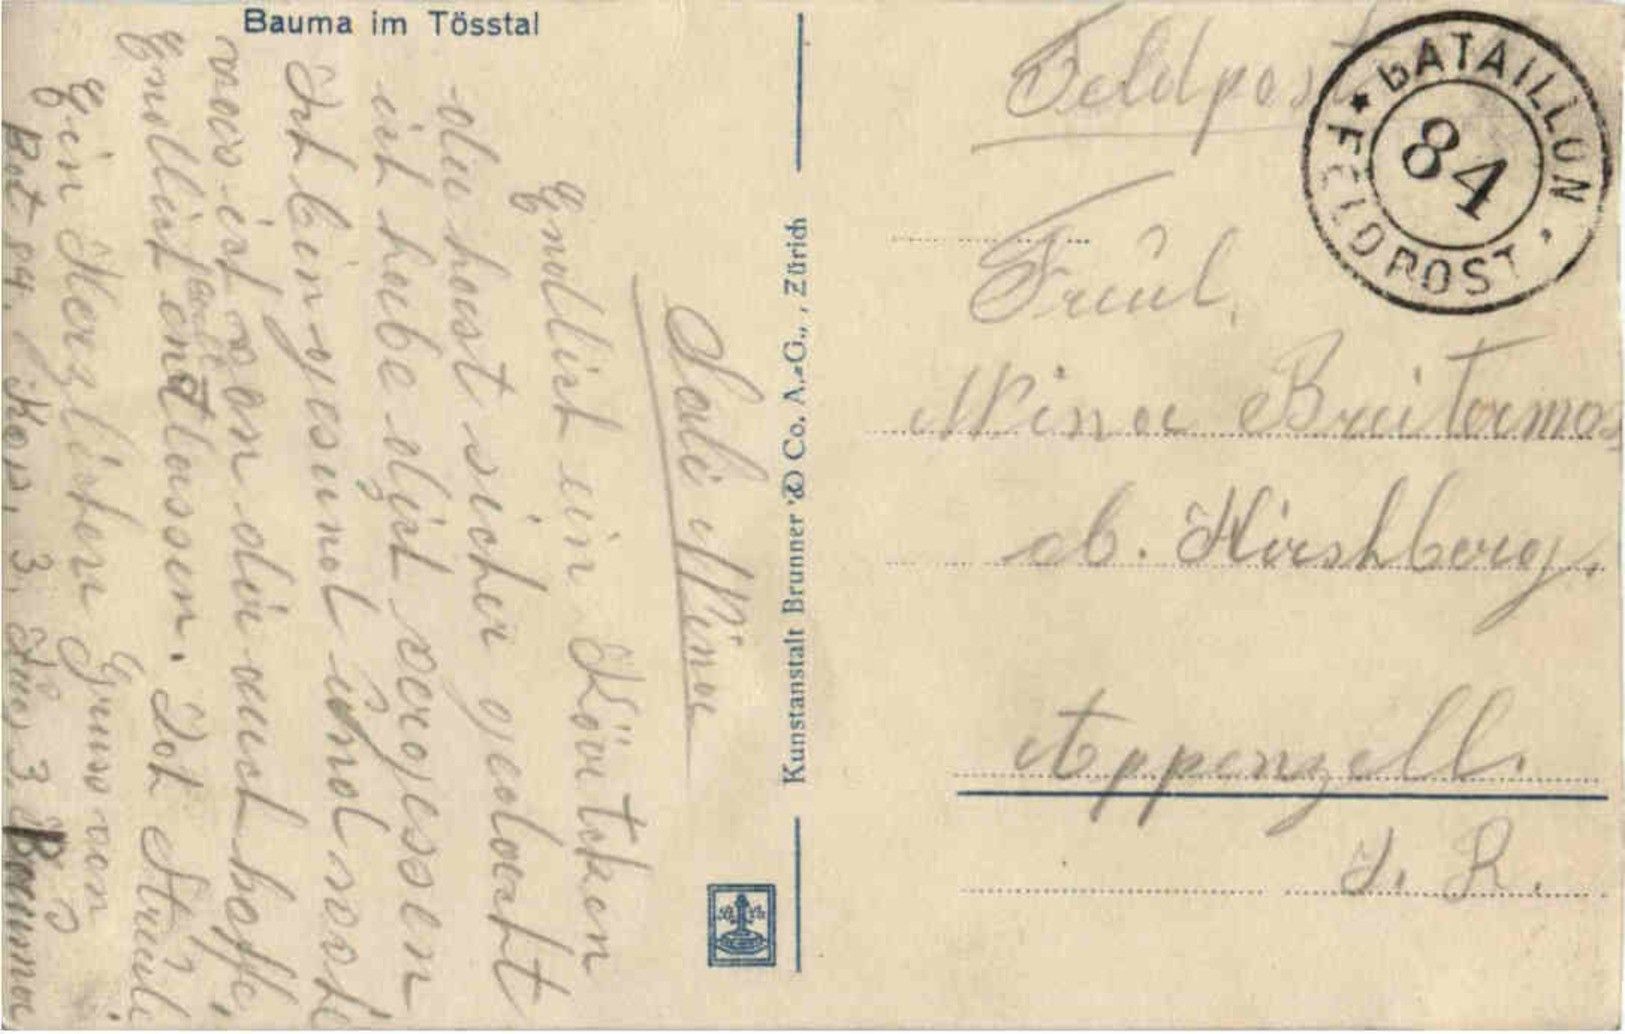 Bauma im Tösstal
Sali Mina
Endlich ein Körtchen
du hast sicher gedacht
ich habe dich vergessen
Ich bin gesund und
was ich von dir auch hoffe,
Endlich entlassen.
Ein Herzlichen Gruss von
Bat 84. Kop. 3. 3 Bauma
Kunstanstalt Brunner & Co. A.-G., Zürich
Feldpost
BATAILLON
84
FELDPOST
Fräul.
Mina Breitenmos
ob. Hirshberg.
Appenzell.
I. R.